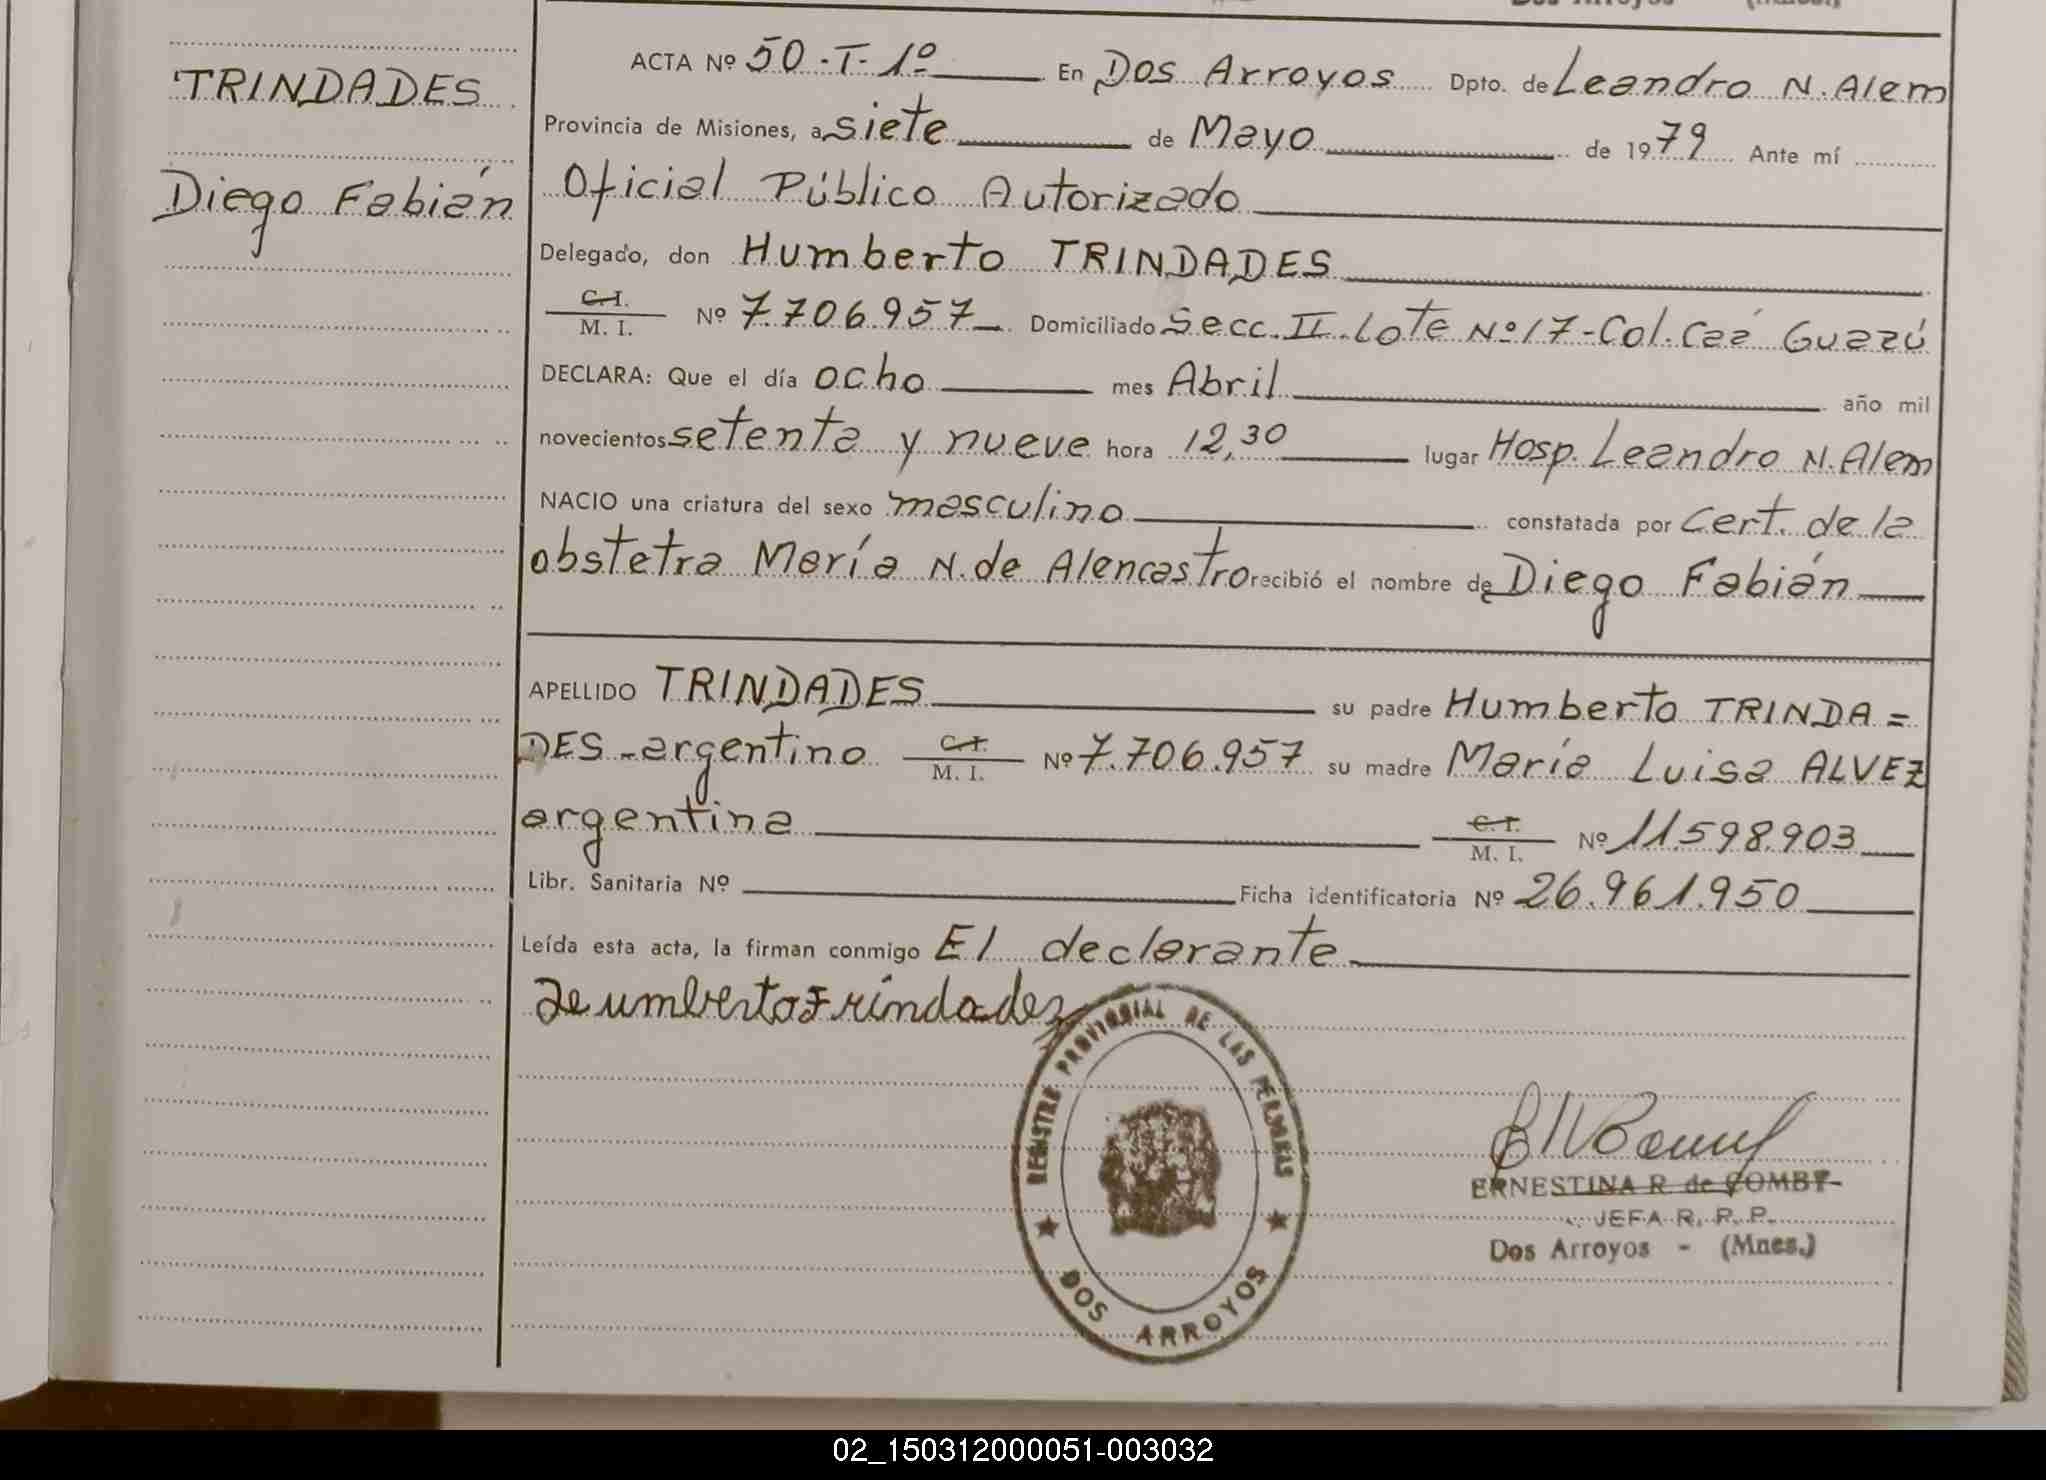 TRINDADES
Diego Fabián
ACTA Nº 50-T-1º En Dos Arroyos Dpto. de Leandro N. Alem
Provincia de Misiones, a siete de Mayo de 1979 Ante mí
Oficial Público Autorizado
Delegado, don Humberto TRINDADES
C.I.
M. I. Nº 7.706.957 Domiciliado Secc. II. Lote Nº 17-Col. Caá Guazú
DECLARA: Que el día ocho mes Abril año mil
novecientos setenta y nueve hora 12,30 lugar Hosp. Leandro N. Alem
NACIO una criatura del sexo masculino constatada por Cert. de la
obstetra María N. de Alencastro recibió el nombre de Diego Fabián
APELLIDO TRINDADES su padre Humberto TRINDA=
DES-argentino C.I. M. I. Nº 7.706.957 su madre María Luisa ALVEZ
argentina C.I. M. I. Nº 11.598.903
Libr. Sanitaria Nº Ficha identificatoria Nº 26.961.950
Leída esta acta, la firman conmigo El declarante
Humberto Trindadez
PROVINCIAL DE LAS
DOS ARROYOS
ERNESTINA R. de
JEFA R. P. P.
Dos Arroyos - (Mnes.)
02_150312000051-003032